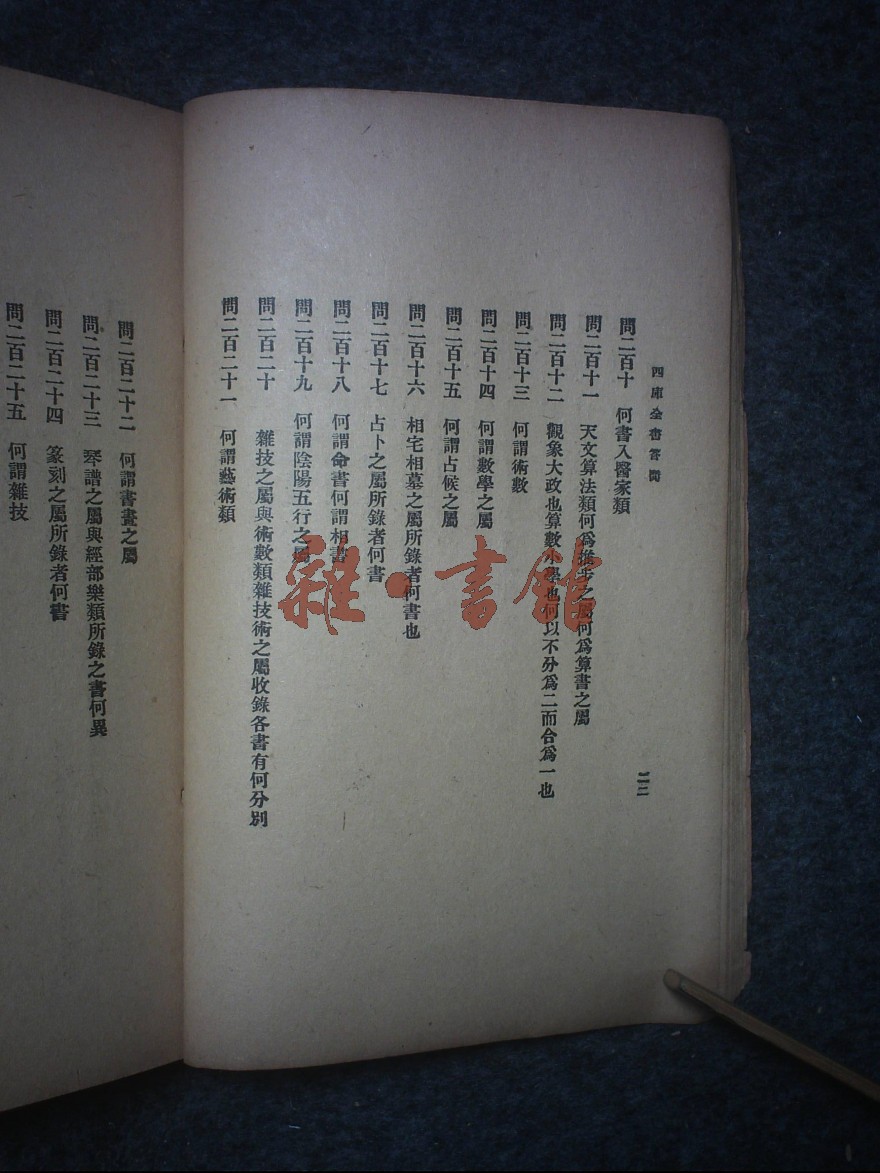 四庫全書答問
二二
問二百十　何書入醫家類
問二百十一　天文算法類何爲推步之屬何爲算書之屬
問二百十二　觀象大政也算數小學也何以不分爲二而合爲一也
問二百十三　何謂術數
問二百十四　何謂數學之屬
問二百十五　何謂占候之屬
問二百十六　相宅相墓之屬所錄者何書也
問二百十七　占卜之屬所錄者何書
問二百十八　何謂命書何謂相書
問二百十九　何謂陰陽五行之屬
問二百二十　雜技之屬與術數類雜技術之屬收錄各書有何分別
問二百二十一　何謂藝術類
問二百二十二　何謂書畫之屬
問二百二十三　琴譜之屬與經部樂類所錄之書何異
問二百二十四　篆刻之屬所錄者何書
問二百二十五　何謂雜技
雜·書館